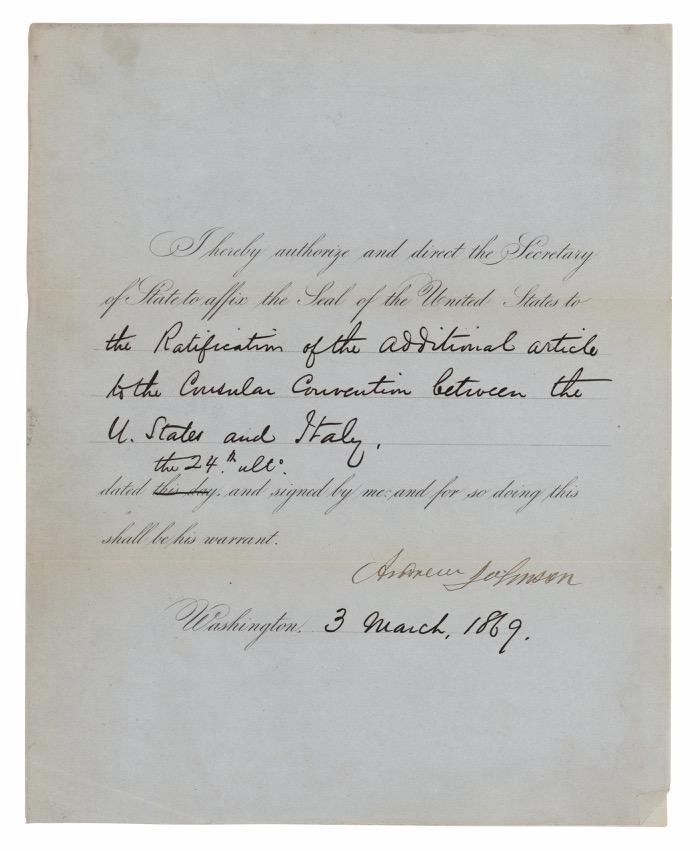 I hereby authorize and direct the Secretary
of State to affix the Seal of the United States to
the Ratification of the additional article
to the Consular Convention between the
U. States and Italy,
the 24.th ulto.
dated this day, and signed by me: and for so doing this
shall be his warrant.
Andrew Johnson
Washington, 3 March, 1869.